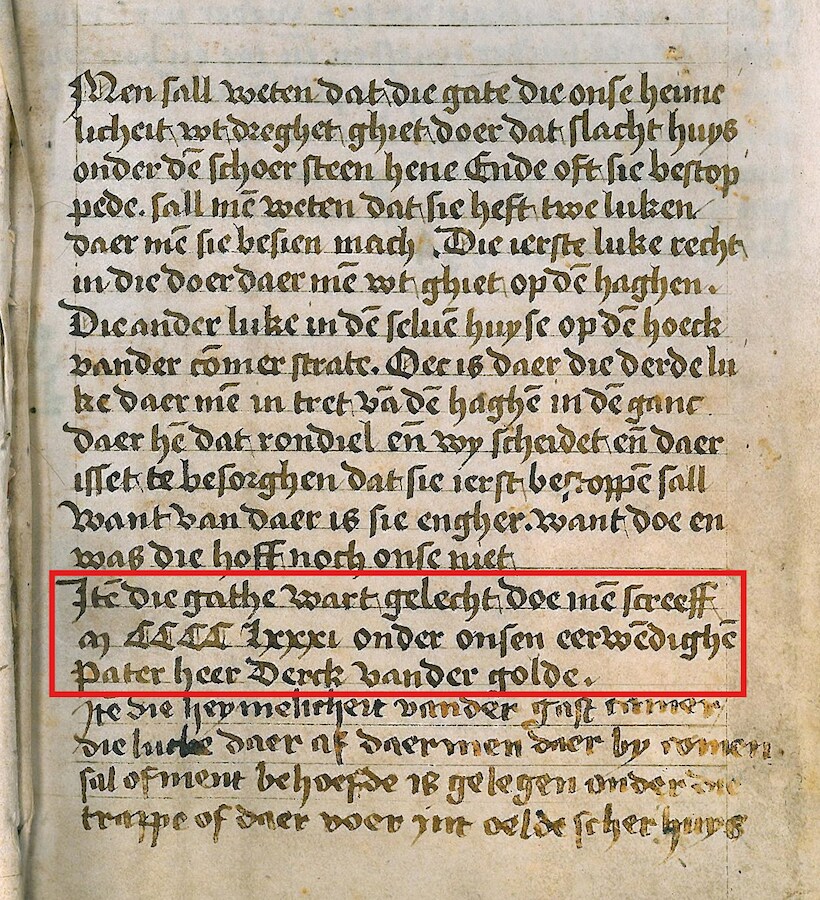 Men sall weten dat die gate die onse heime
licheit wt dreghet ghiet doer dat slacht huys
onder dē schoer steen hene Ende oft sie bestop
pede. sall mē weten dat sie heft twe luken
daer mē sie besien mach. Die ierste luke recht
in die doer daer mē wt ghiet op dē haghen.
Die ander luke in dē seluē huyse op dē hoeck
vander cōmer strate. Oec is daer die derde lu
ke daer mē in tret vā dē haghē in dē ganc
daer hē dat rondiel eñ wy scheidet eñ daer
isset te besorghen dat sie ierst bestoppē sall
Want van daer is sie engher. want doe en
was die hoff noch onse niet
Jtē die gathe wart gelecht doe mē screeff
m CCCC lxxxi onder onsen eerwēdighē
Pater heer Derck vander golde.
Jtē die heymelicheit vander gast camer
die lucke daer af daermen daer by comen
sal of ment behoefde is gelegen onder die
trappe of daer voer int oelde scher huys